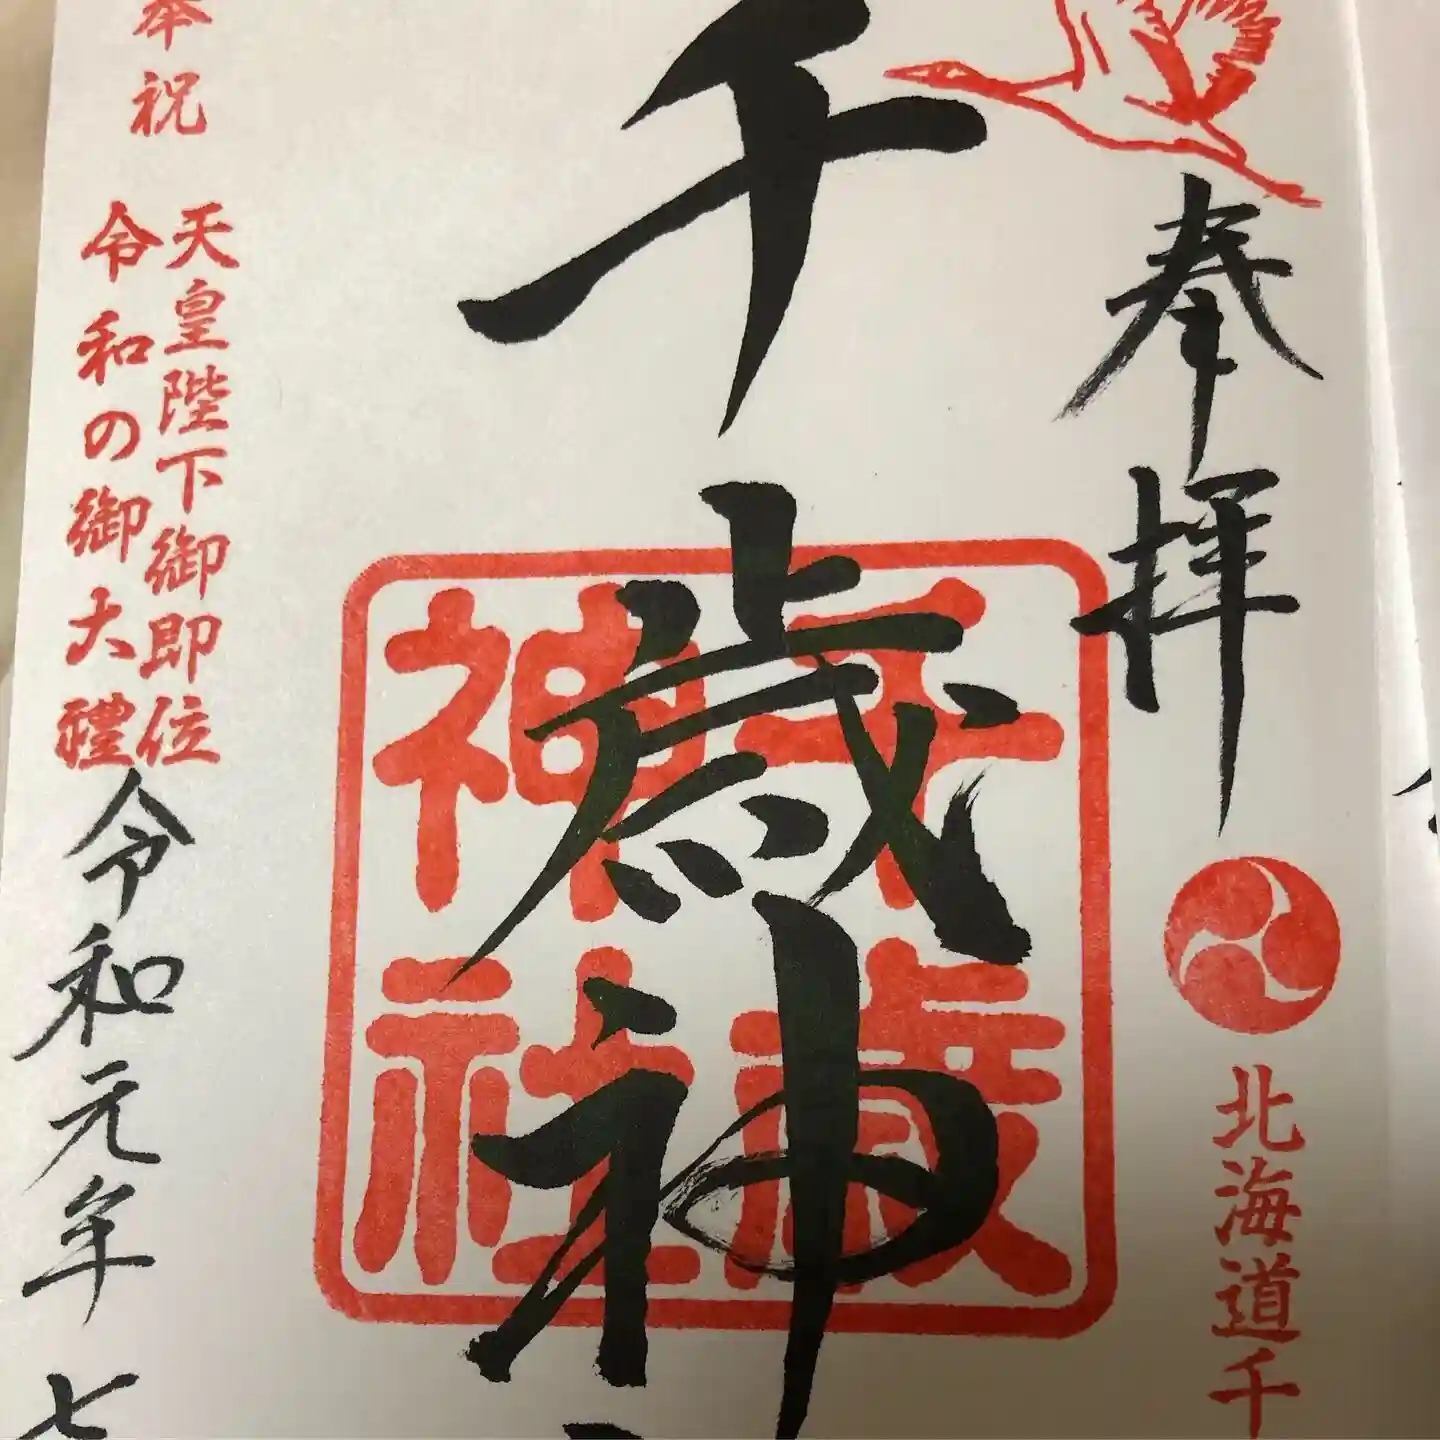 奉拝
北海道千
千歳神
千歳
神社
奉祝
天皇陛下御即位
令和の御大禮
令和元年